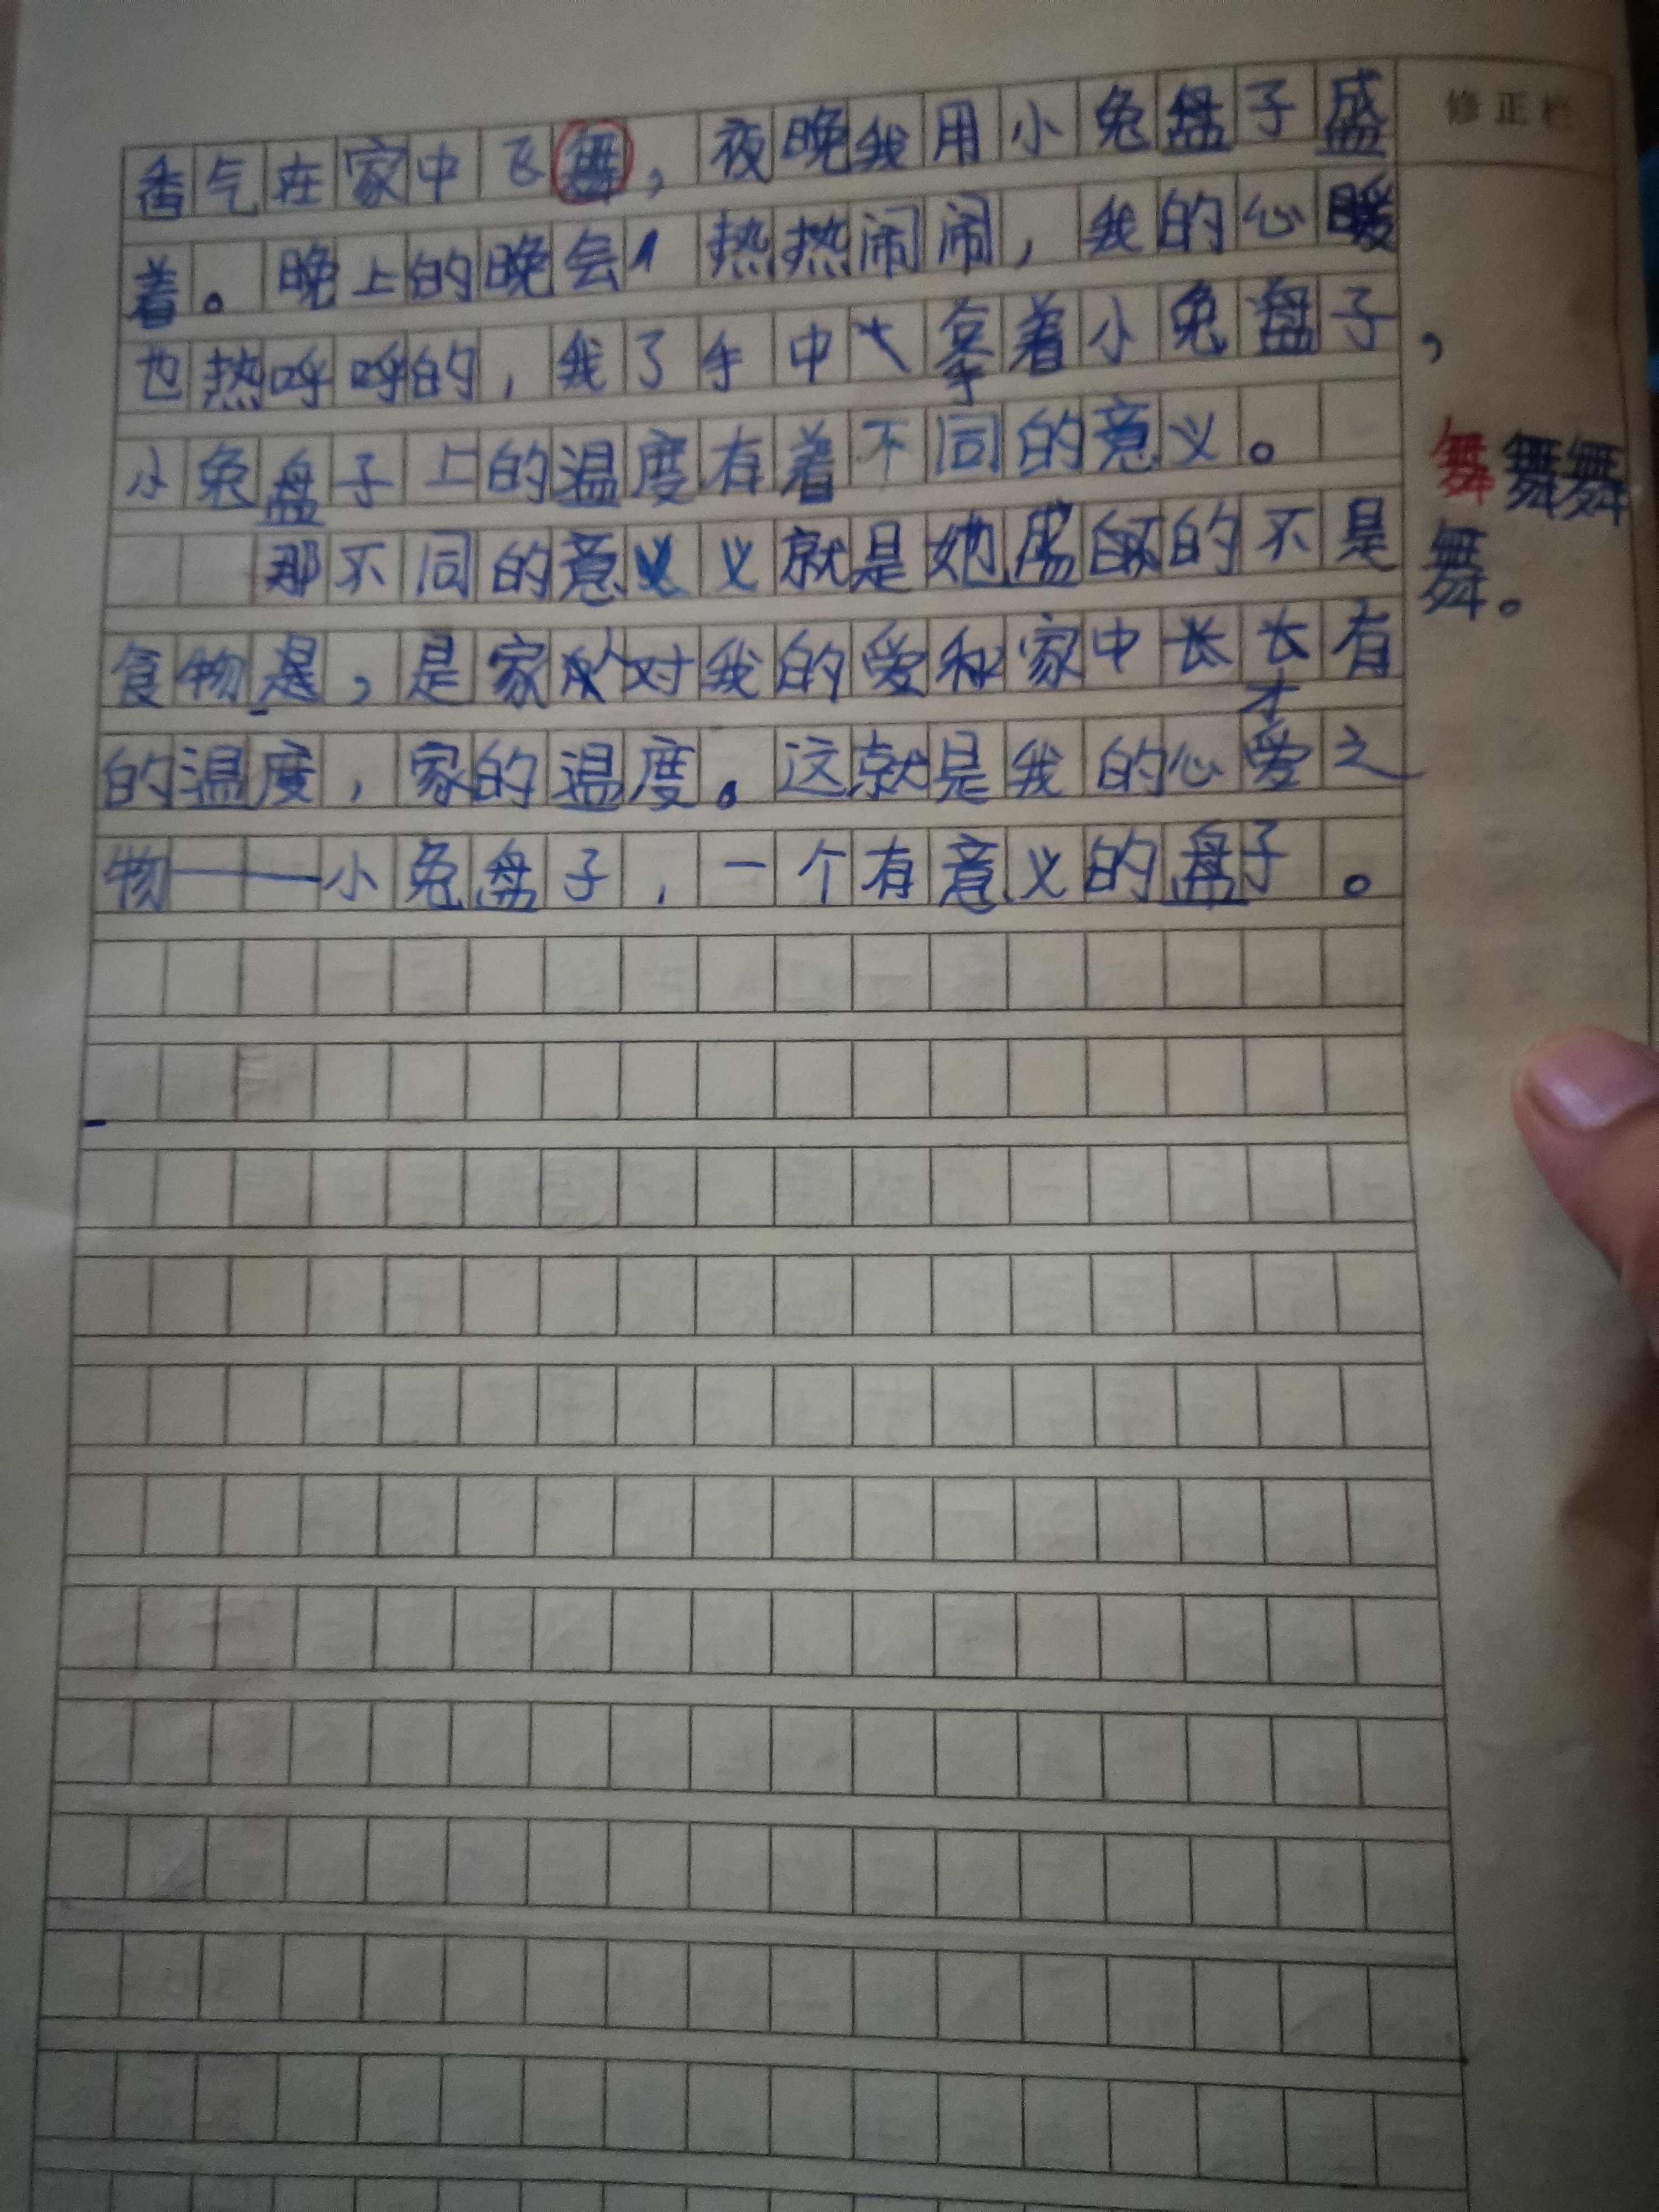 修正栏
香气在家中飞舞，夜晚我用小兔盘子盛
着。晚上的晚会热热闹闹，我的心暖
也热呼呼的，我了手中拿着小兔盘子，
小兔盘子上的温度有着不同的意义。
那不同的意义就是她盛的不是
食物是，是家人对我的爱和家中长长才有
的温度，家的温度。这就是我的心爱之
物——小兔盘子，一个有意义的盘子。
舞舞舞
舞。